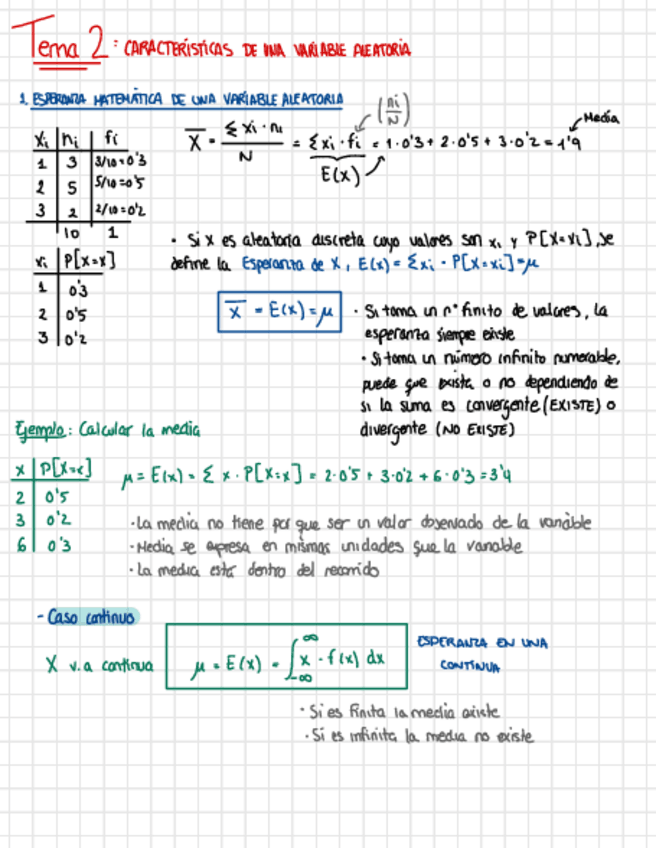 Tema 2: CARACTERÍSTICAS DE UNA VARIABLE ALEATORIA
1. ESPERANZA MATEMÁTICA DE UNA VARIABLE ALEATORIA
xi | ni | fi
1 | 3 | 3/10=0'3
2 | 5 | 5/10=0'5
3 | 2 | 2/10=0'2
10 | 1
X̄ = Σ xi · ni / N = Σ xi · fi = 1·0'3 + 2·0'5 + 3·0'2 = 1'9
(ni/N)
Media
E(x)
xi | P[X=x]
1 | 0'3
2 | 0'5
3 | 0'2
· Si X es aleatoria discreta cuyo valores son xi y P[X=xi], se
define la Esperanza de X, E(x) = Σxi · P[X=xi] = μ
X̄ = E(x) = μ
· Si toma un nº finito de valores, la
esperanza siempre existe
· Si toma un número infinito numerable,
puede que exista o no dependiendo de
si la suma es convergente (EXISTE) o
divergente (NO EXISTE)
Ejemplo: Calcular la media
x | P[X=x]
2 | 0'5
3 | 0'2
6 | 0'3
μ = E(x) = Σ x · P[X=x] = 2·0'5 + 3·0'2 + 6·0'3 = 3'4
· La media no tiene por que ser un valor observado de la variable
· Media se expresa en mismas unidades que la variable
· La media está dentro del recorrido
- Caso continuo
X v.a continua
μ = E(x) = ∫_{-∞}^{∞} x · f(x) dx
ESPERANZA EN UNA
CONTINUA
· Si es finita la media existe
· Si es infinita la media no existe